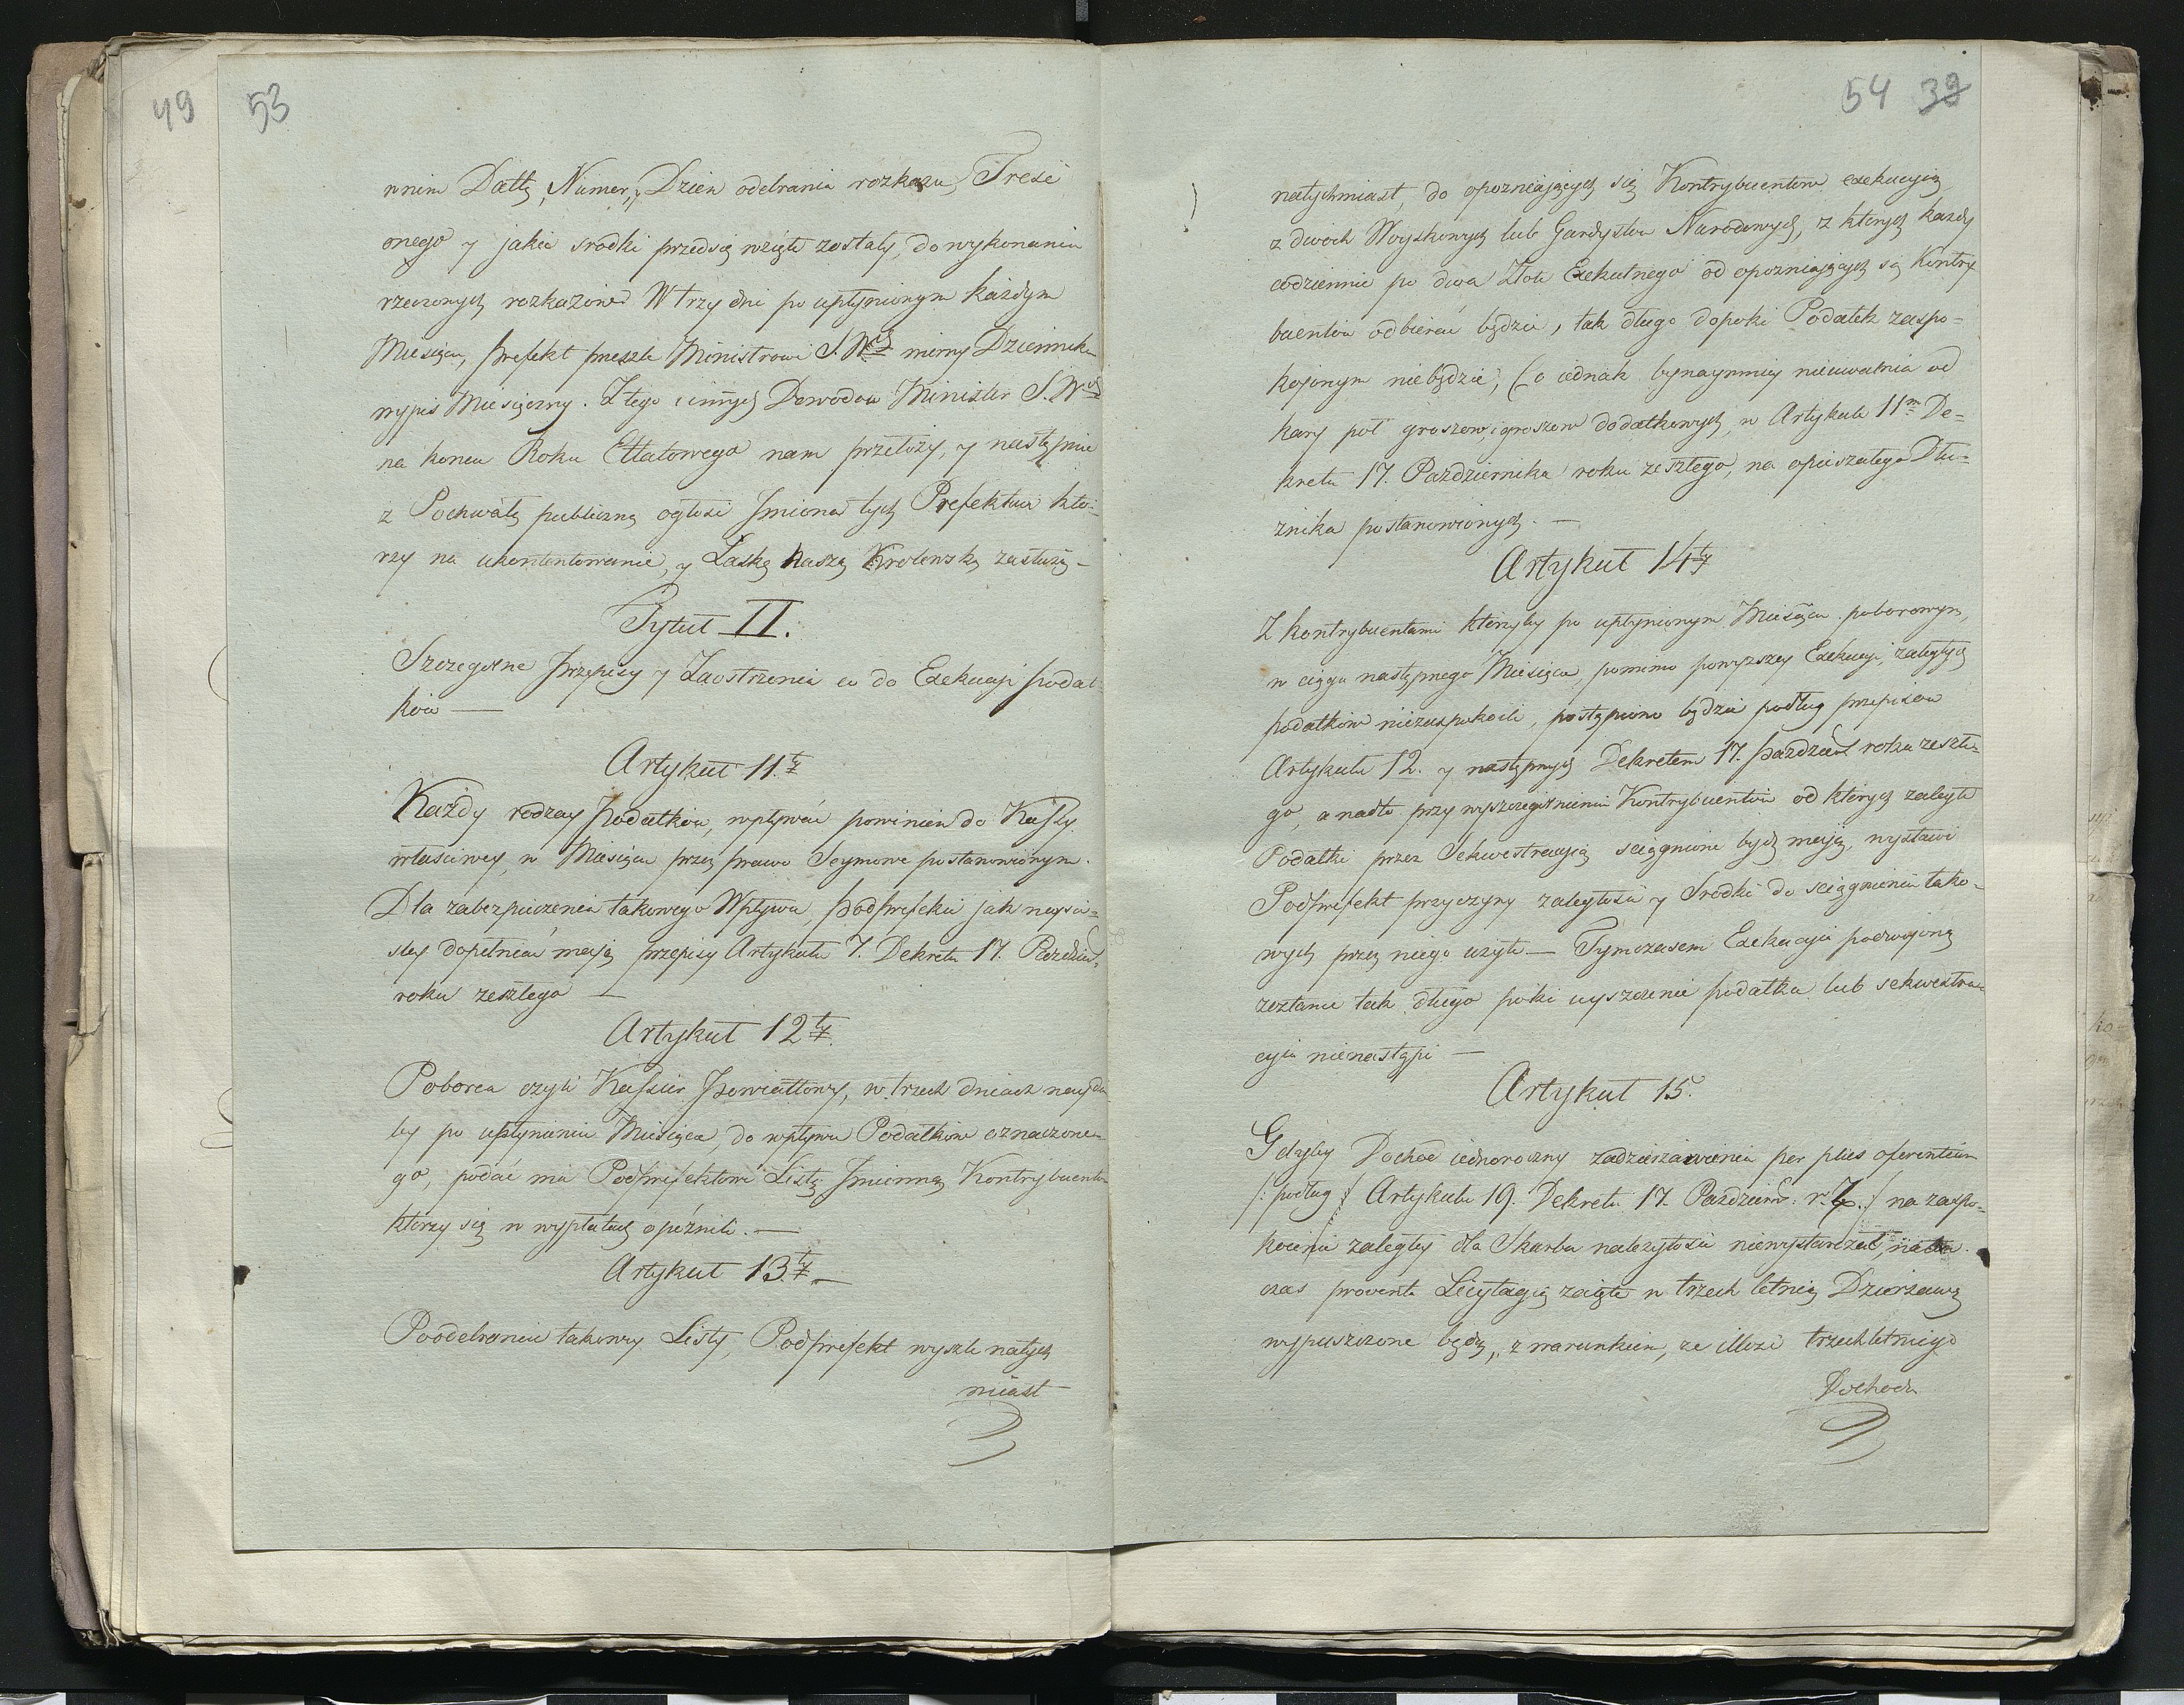 49 53
wnim Dattę, Numer, y Dzien odebrania rozkazu, Treść
onego y jakie srodki przedsię wzięte zostały, do wykonania
rzeczonych rozkazow. W trzy dni po upłynionym każdym
Miesiącu, Prefekt przeszle Ministrowi S. Wch wierny Dziennika
wypis Miesięczny. Z tego i innych Dowodow Minister S. Wch
na koncu Roku Ettatowego nam przełoży, y następnie
z Pochwałą publiczną ogłosi Jmiona tych Prefektow kto-
rzy na ukontentowanie, y Łaskę Naszą Krolewską zasłużą -
Tytuł II.
Szczegolne Przepisy y Zaostrzenia co do Exekucyi podat-
kow —
Artykuł 11.ty
Każdy rodzay Podatkow, wpływać powinien do Kassy
własciwey, w Miesiącu przez prawo Seymowe postanowionym.
Dla zabezpieczenia takowego Wpływu, Podprefekci jak nayści-
sley dopełniać mają przepisy Artykułu 7. Dekretu 17. Pazdzier.
roku zeszlego —
Artykuł 12ty
Poborca czyli Kassier Powiattowy, w trzech dniach nayda-
ley po upłynieniu Miesiąca, do wpływu Podatkow oznaczone-
go, podać ma Podprefektowi Listę Jmienną Kontrybuentow
ktorzy się w wypłatach opóźnili. —
Artykuł 13.ty —
Po odebraniu takowey Listy, Podprefekt wyszle natych
miast
54 39
natychmiast, do opozniających się Kontrybuentow exekucyią
z dwoch Woyskowych lub Gardystow Narodowych, z ktorych każdy
codziennie po dwa Złote Exekutnego od opozniających się Kontry
buentow odbierać będzie, tak długo dopoki Podatek zaspo-
kojonym niebędzie, Co iednak bynaymniey nieuwalnia od
kary poł groszow, i groszow dodatkowych, w Artykule 11m De-
kretu 17. Pazdziernika roku zeszłego, na opieszałego Dłu-
znika postanowionych. —
Artykuł 14ty
Z kontrybuentami ktorzyby po upłynionym Miesiącu poborowym,
w ciągu następnego Miesiąca, pomimo powyzszey Exekucyi, zaległych
podatkow niezaspokoili, postąpiono będzie podług przepisow
Artykułu 12. y następnych Dekretem 17. Pazdzier. roku zeszłe-
go, a nadto przy wyszczegolnieniu Kontrybuentow od ktorych zaległe
Podatki przez Sekwestracyią sciągnione bydz mają, wystawi
Podprefekt przyczyny zaległosci y Srodki do sciągnienia tako-
wych przez niego uzyte — Tymczasem Exekucyia podwojoną
zostanie tak długo poki uyszczenie podatku lub sekwestra-
cyia nienastąpi —
Artykuł 15.
Gdyby Dochod iednoroczny zadzierżawienia per plus oferentium
/: podług / Artykułu 19. Dekretu 17. Pazdziern. r. z. / na zaspo-
koienie zaległey dla Skarbu nalezytosci niewystarczał,
czas prowenta Licytacyią zaięte w trzech letnią Dzierżawę
wypuszczone będą, z warunkiem, ze illosć trzechletniego
Dochodu